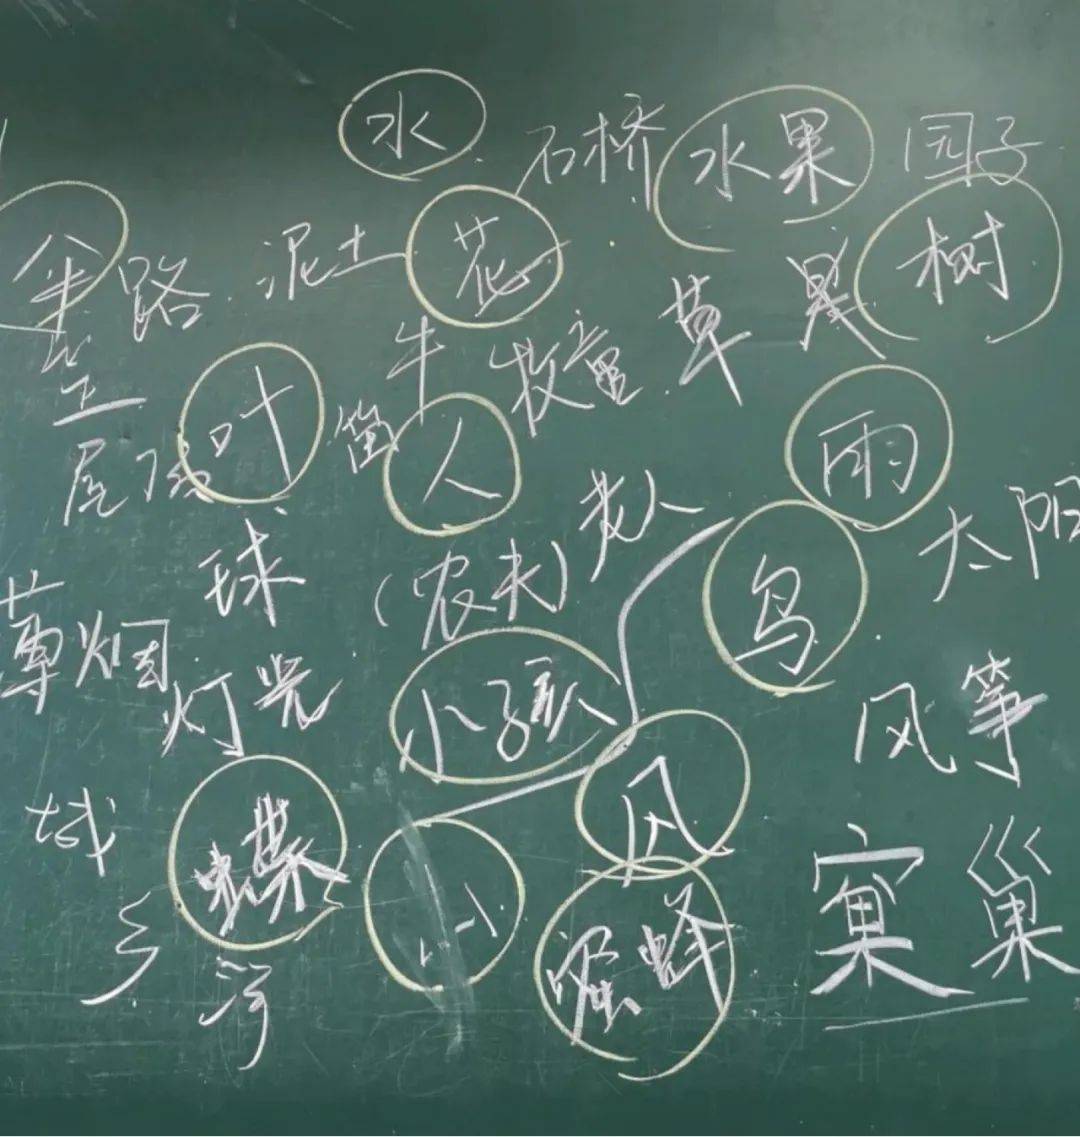 水 石桥 水果 园子
路 泥土 花 果 树
牛 牧童 草
叶 笛 人 雨
尾 老人 太阳
球 (农夫) 鸟
草 烟 小孩
灯光 风 风筝
域 蝶 小 窠 巢
乡 河 蜜蜂